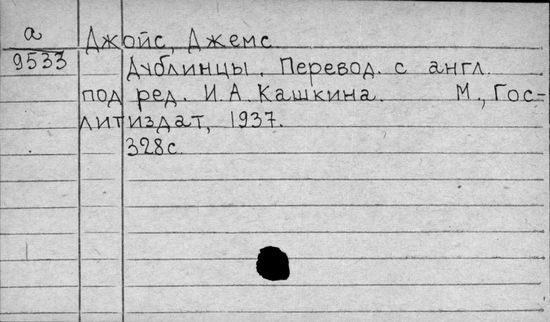 а Джойс, Джемс
9533 Дублинцы. Перевод. с англ.
под ред. И.А. Кашкина. М., Гос-
литиздат, 1937.
328с.